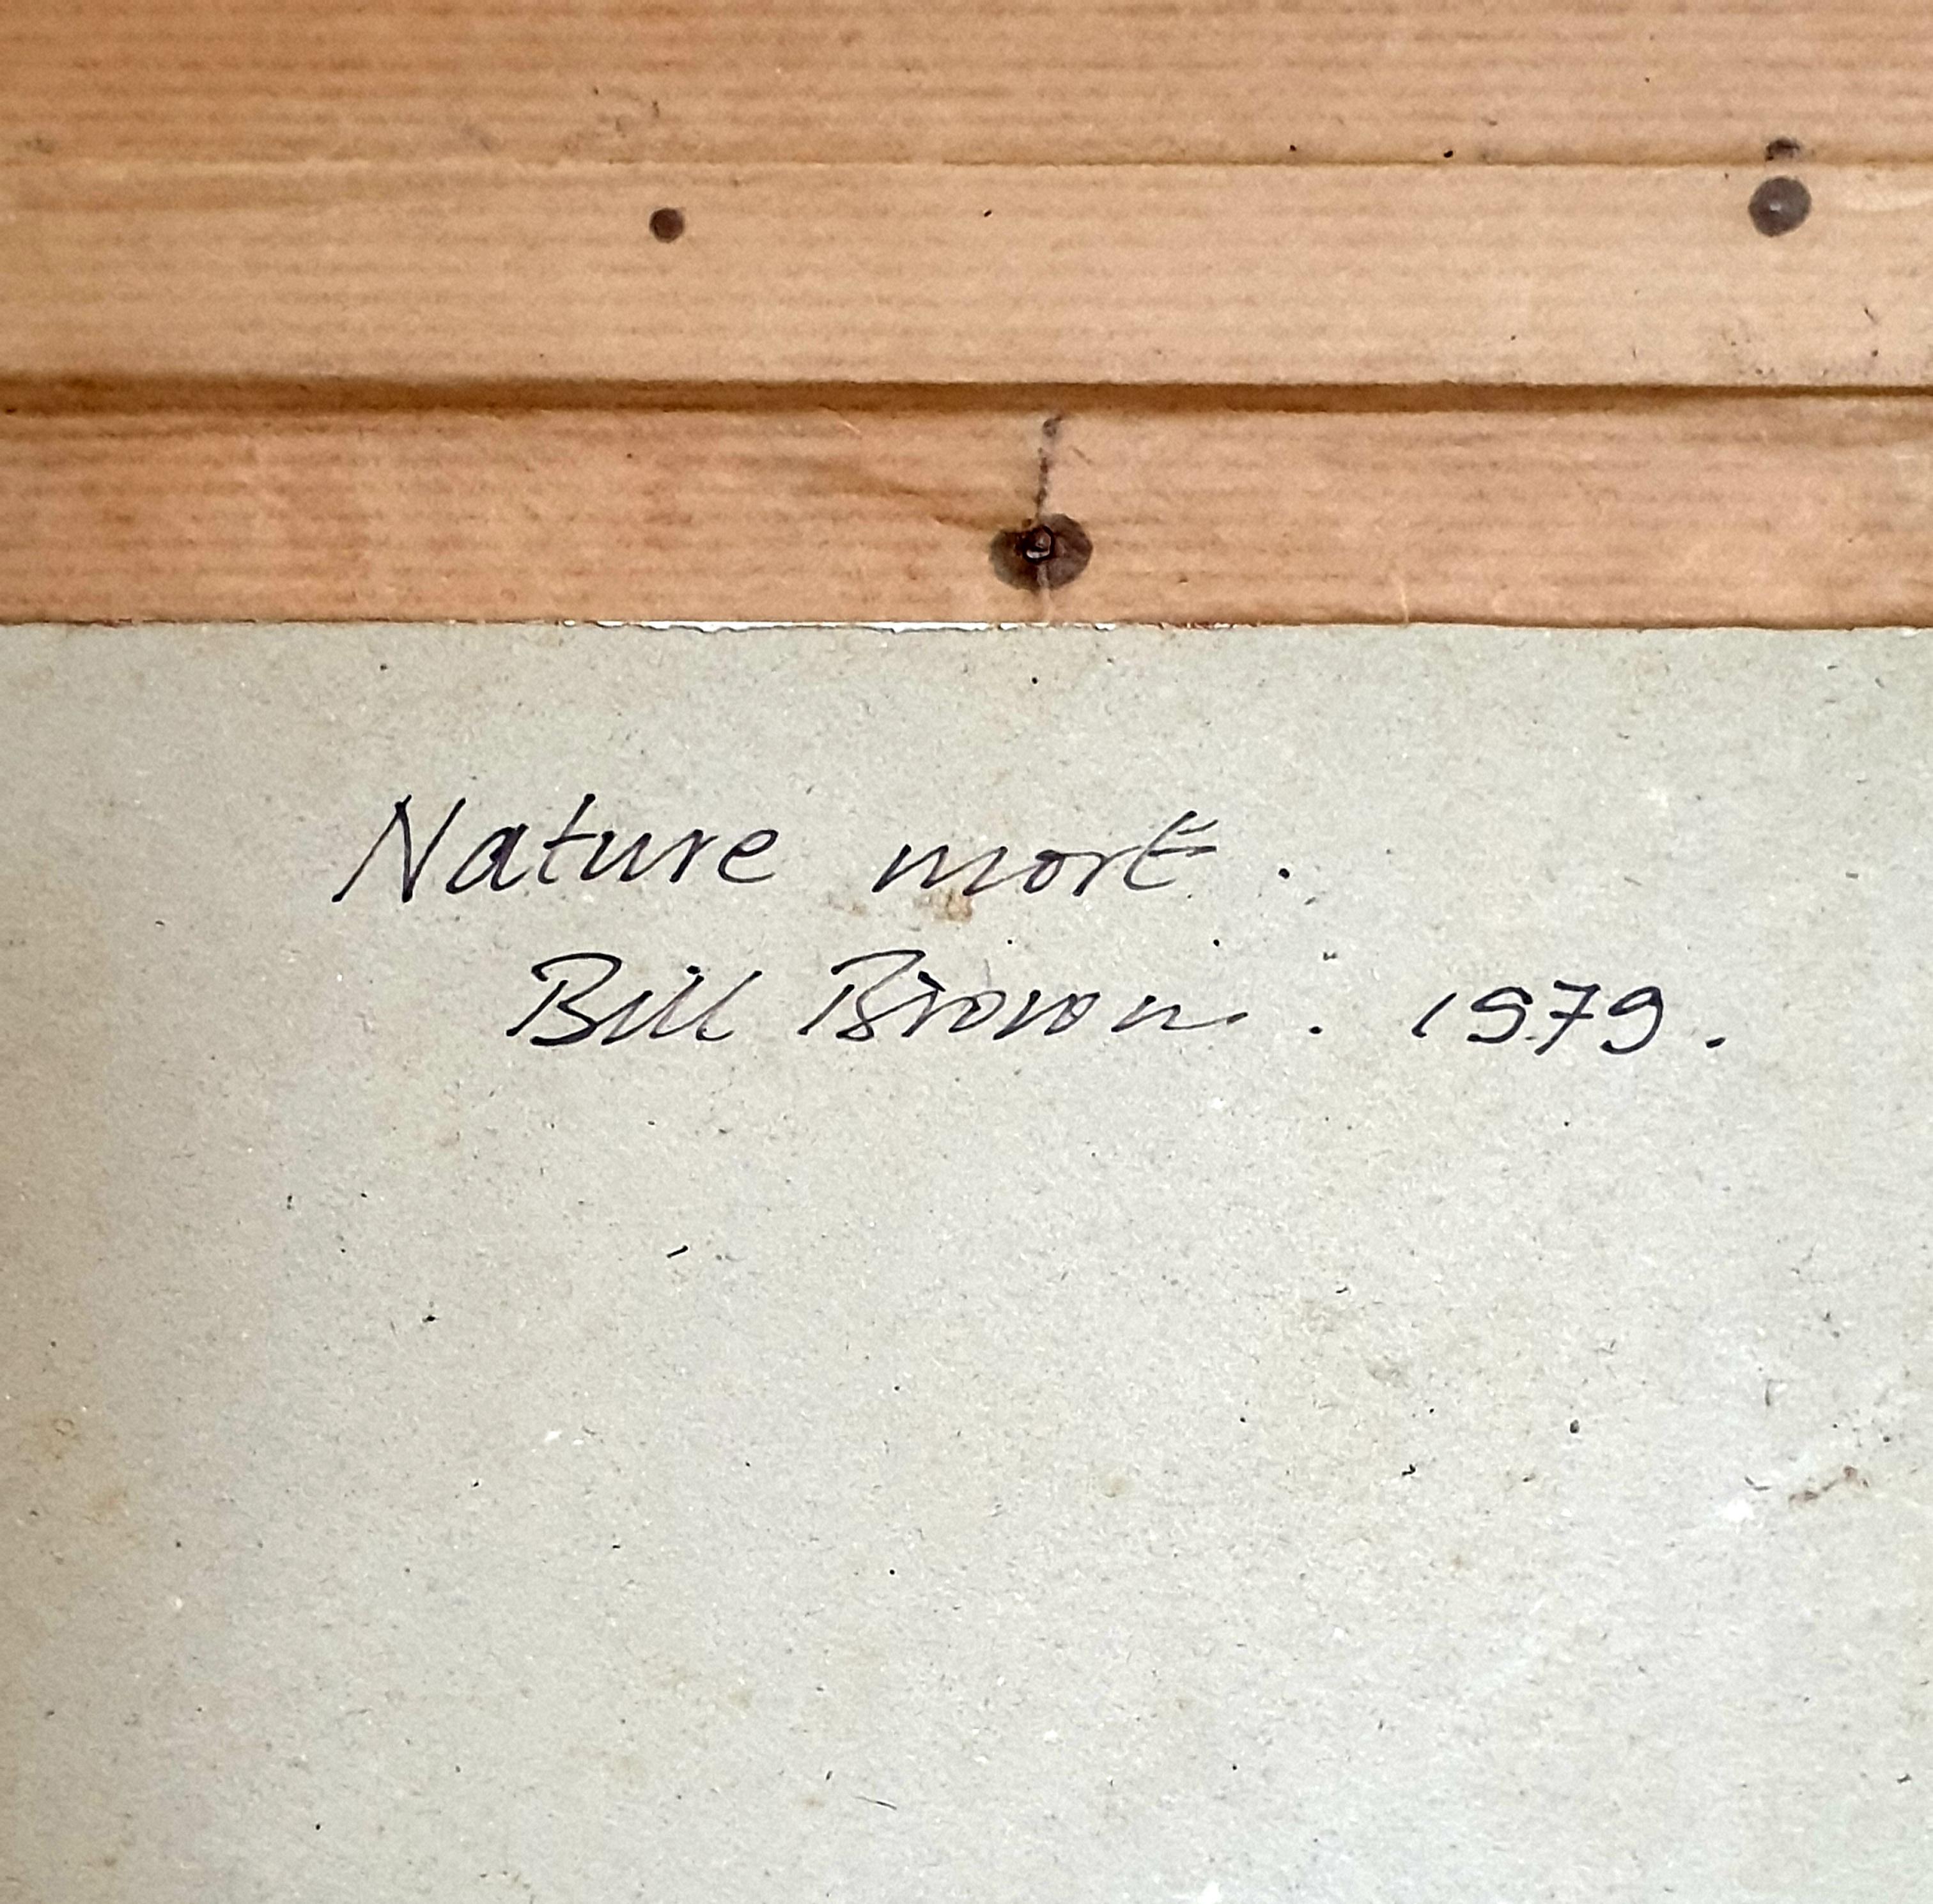 Nature mort.
Bill Brown. 1979.